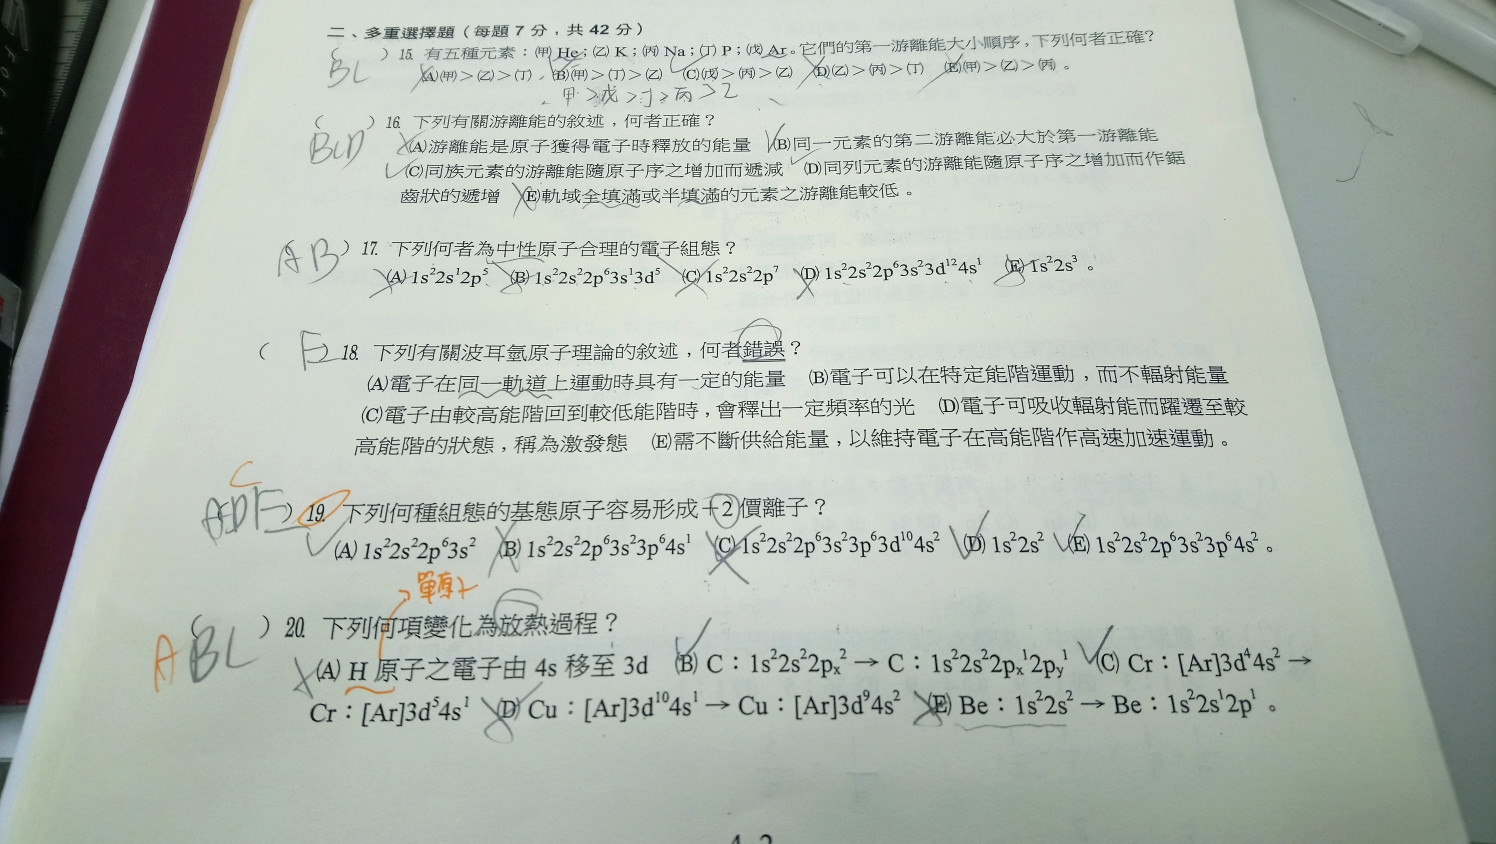 二、多重選擇題（每題 7 分，共 42 分）
BC
（　　）15. 有五種元素：(甲) He；(乙) K；(丙) Na；(丁) P；(戊) Ar。它們的第一游離能大小順序，下列何者正確？
(A)(甲)＞(乙)＞(丁)　(B)(甲)＞(丁)＞(乙)　(C)(戊)＞(丙)＞(乙)　(D)(乙)＞(丙)＞(丁)　(E)(甲)＞(乙)＞(丙)。
甲＞戊＞丁＞丙＞乙
BCD
（　　）16. 下列有關游離能的敘述，何者正確？
(A)游離能是原子獲得電子時釋放的能量　(B)同一元素的第二游離能必大於第一游離能
(C)同族元素的游離能隨原子序之增加而遞減　(D)同列元素的游離能隨原子序之增加而作鋸
齒狀的遞增　(E)軌域全填滿或半填滿的元素之游離能較低。
AB
）17. 下列何者為中性原子合理的電子組態？
(A) 1s²2s¹2p⁵　(B) 1s²2s²2p⁶3s¹3d⁵　(C) 1s²2s²2p⁷　(D) 1s²2s²2p⁶3s²3d¹²4s¹　(E) 1s²2s³。
（ E ）18. 下列有關波耳氫原子理論的敘述，何者錯誤？
(A)電子在同一軌道上運動時具有一定的能量　(B)電子可以在特定能階運動，而不輻射能量
(C)電子由較高能階回到較低能階時，會釋出一定頻率的光　(D)電子可吸收輻射能而躍遷至較
高能階的狀態，稱為激發態　(E)需不斷供給能量，以維持電子在高能階作高速加速運動。
C
ADE
）19. 下列何種組態的基態原子容易形成＋2 價離子？
(A) 1s²2s²2p⁶3s²　(B) 1s²2s²2p⁶3s²3p⁶4s¹　(C) 1s²2s²2p⁶3s²3p⁶3d¹⁰4s²　(D) 1s²2s²　(E) 1s²2s²2p⁶3s²3p⁶4s²。
A BC
（　　）20. 下列何項變化為放熱過程？
(A) H 原子之電子由 4s 移至 3d　(B) C：1s²2s²2pₓ² → C：1s²2s²2pₓ¹2pᵧ¹　(C) Cr：[Ar]3d⁴4s² →
Cr：[Ar]3d⁵4s¹　(D) Cu：[Ar]3d¹⁰4s¹ → Cu：[Ar]3d⁹4s²　(E) Be：1s²2s² → Be：1s²2s¹2p¹。